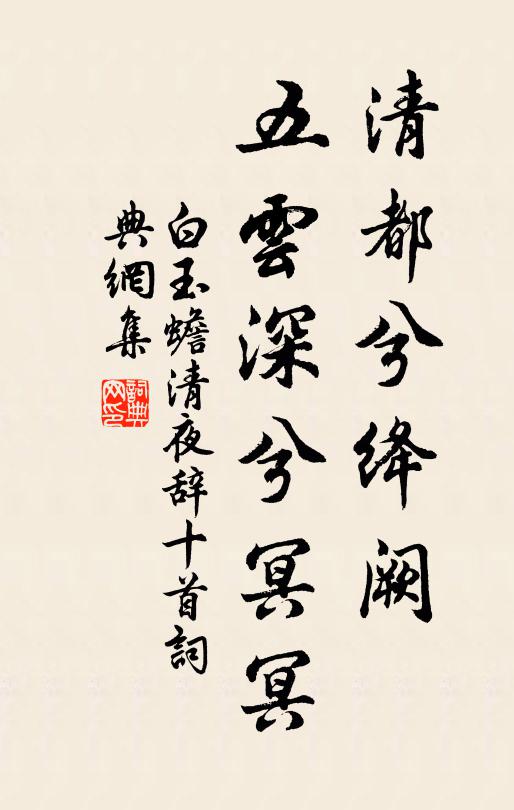 清都兮绛阙
五雲深兮冥冥
白玉蟾清夜辞十首詞
典網集
詞典网印